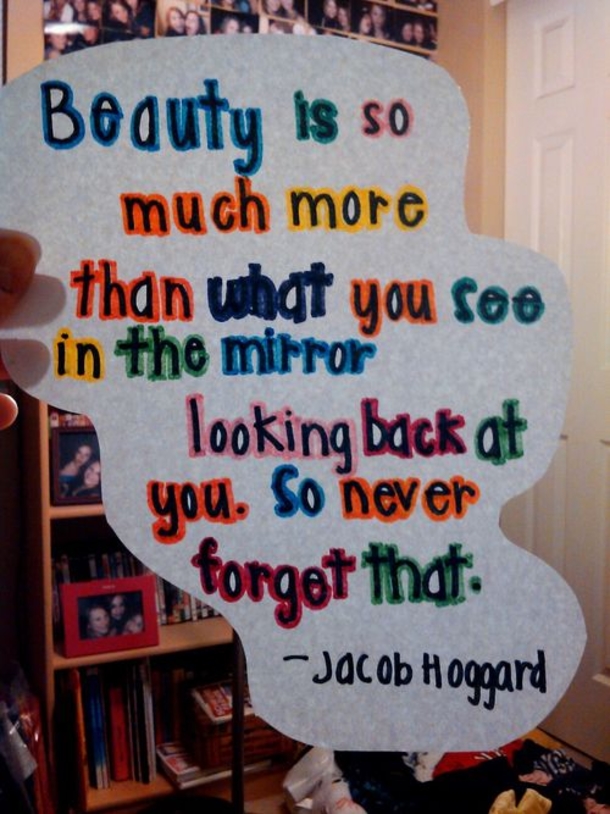 Beauty is so
much more
than what you see
in the mirror
looking back at
you. So never
forget that.
-Jacob Hoggard